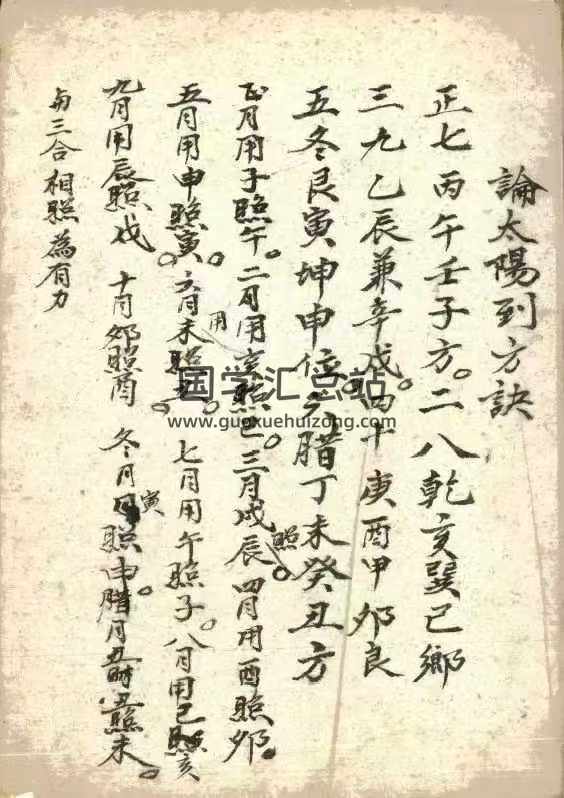 論太陽到方訣
正七丙午壬子方。二八乾亥巽巳鄉
三九乙辰兼辛戌。四十庚酉甲卯良
五冬艮寅坤申位。六腊丁未癸丑方
正月用子照午。二月用亥照巳。三月戌照辰。四月用酉照卯。
五月用申照寅。六月用未照丑。七月用午照子。八月用巳照亥
九月用辰照戌 十月卯照酉。冬月寅照申。腊月丑照未。
每三合相照為有力
国学汇总站
www.guoxuehuizong.com